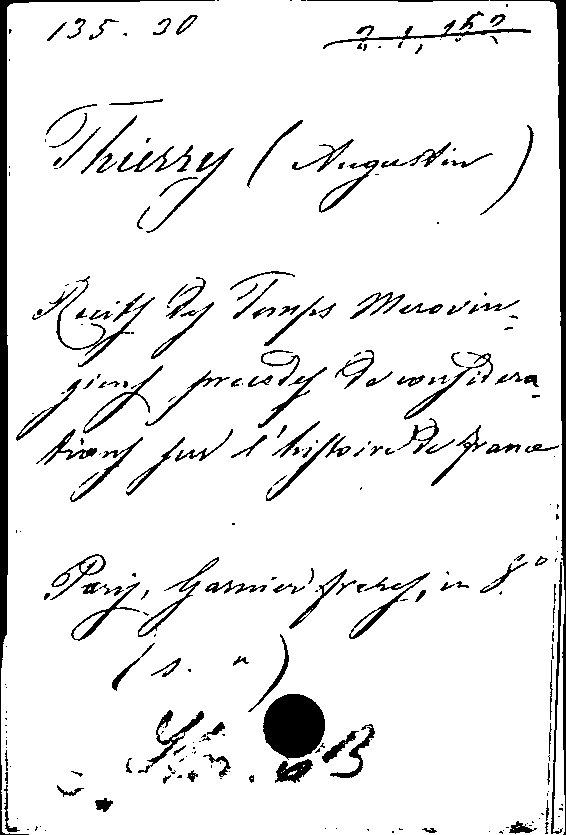 135. 30 2. 1, 152
Thierry (Augustin)
Recits des Temps Merovin-
giens precedes de considera-
tions sur l'histoire de france
Paris, Garnier freres, in 8°
(s. a)